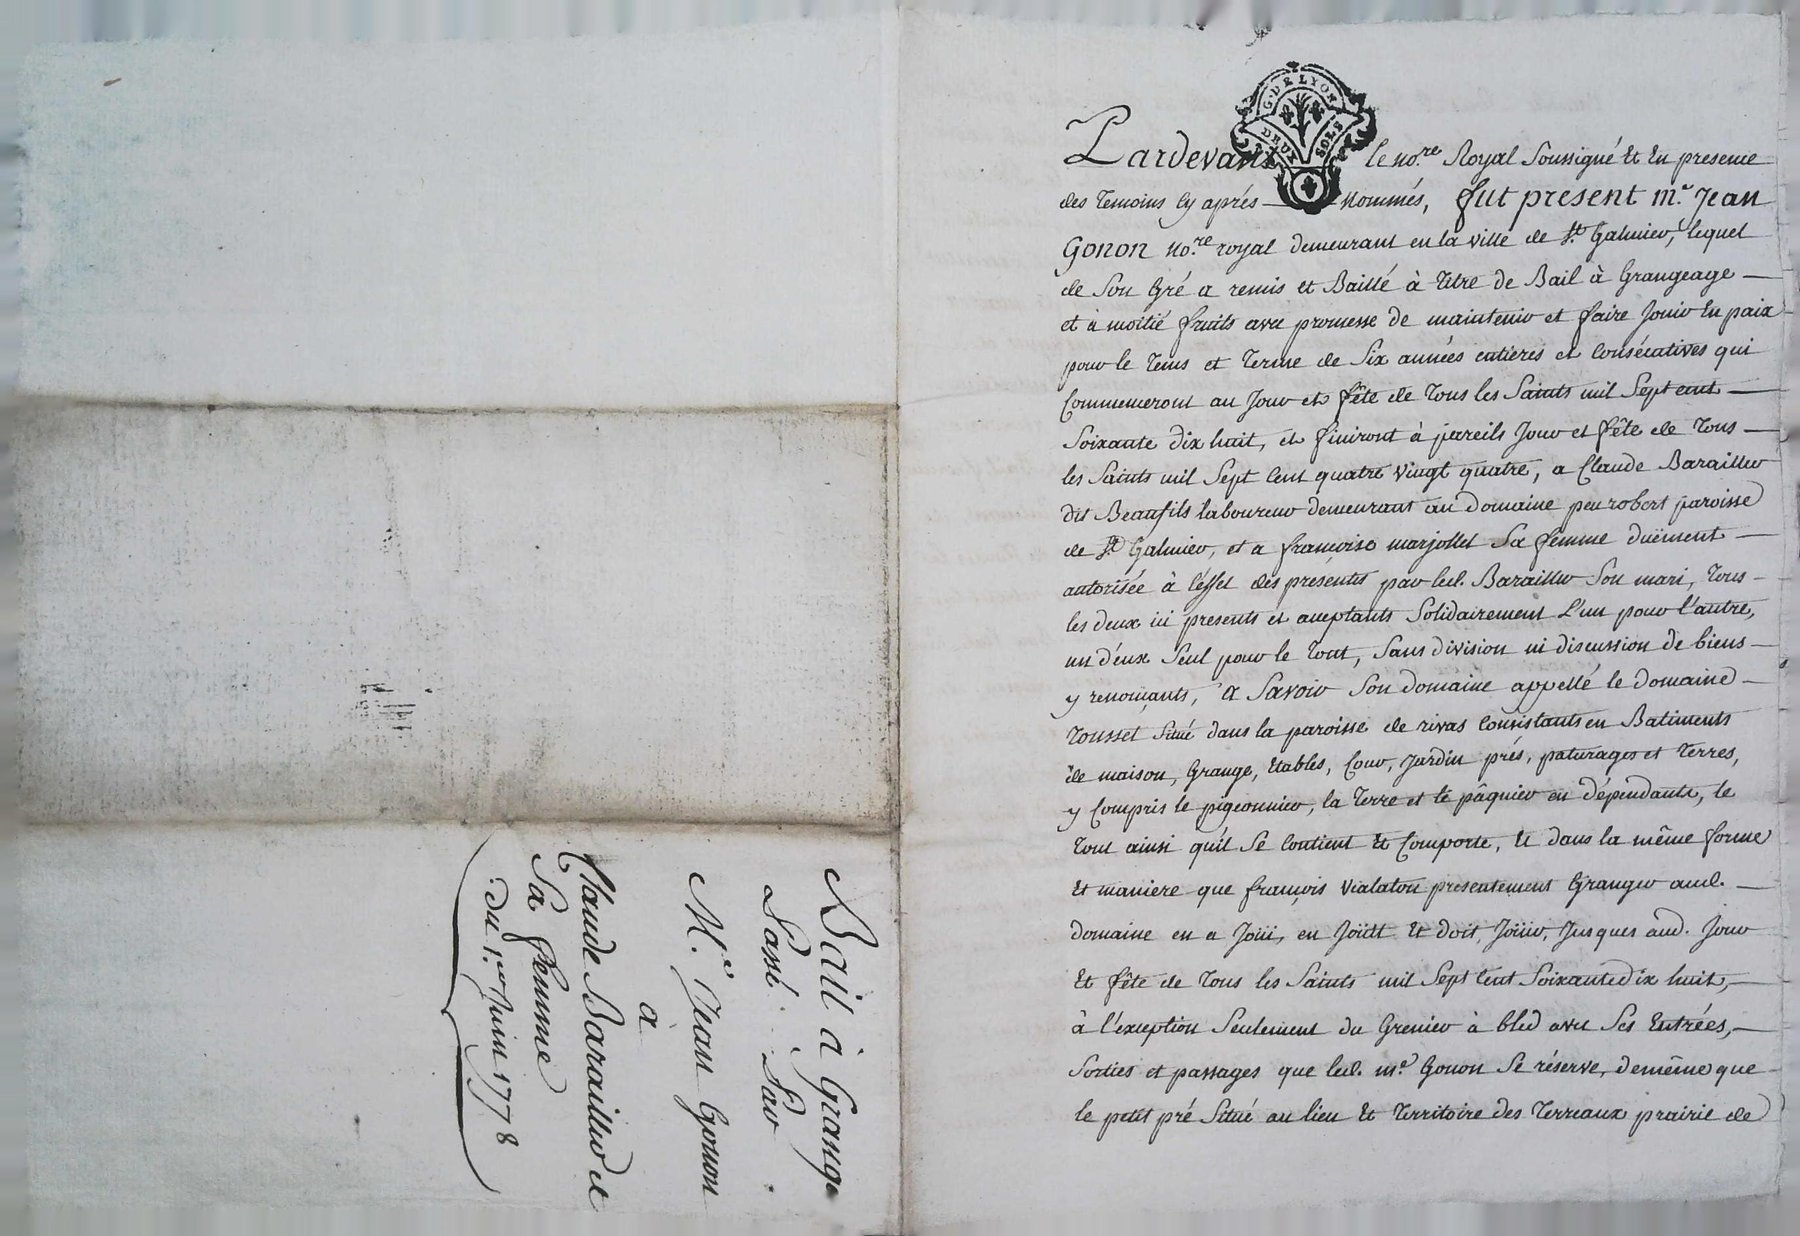 Bail à Grange
Passé Par
M.e Jean Gonon
à
Claude Barailler et
Sa femme
du 1.er Juin 1778
G. DE LYON
DEUX SOLS
Pardevant le no.re Royal Soussigné Et En presence
des temoins Cy aprés nommés, fut present m.e Jean
Gonon no.re royal demeurant en la ville de S.t Galmier, lequel
de Son Gré a remis et Baillé à titre de Bail à Grangeage
et à moitié fruits avec promesse de maintenir et faire Jouir En paix
pour le tems et terme de Six années entieres et Consécutives qui
Commenceront au Jour et fête de tous les Saints mil Sept cent
Soixante dix huit, et finiront à pareils Jour et fête de tous
les Saints mil Sept Cent quatre Vingt quatre, a Claude Barailler
dit Beaufils laboureur demeurant au domaine peurobert paroisse
de S.t Galmier, et a francoise marjollet Sa femme duëment
autorisée à l'éffet des présentes par led. Barailler Son mari, tous
les deux ici presents et acceptants Solidairement L'un pour l'autre,
un d'eux Seul pour le tout, Sans division ni discussion de biens
y renonçants, a Savoir Son domaine appellé le domaine
tousset Situé dans la paroisse de rivas Consistants en Batiments
de maison, Grange, Etables, Cour, Jardin prés, paturages et terres,
y Compris le pigeonnier, la terre et le pâquier en dépendants, le
tout ainsi qu'il Se Contient Et Comporte, Et dans la même forme
Et maniere que françois Vialaton presentement Granger aud.
domaine en a Joüi, en Joüit Et doit Joüir, Jusques aud. Jour
Et fête de tous les Saints mil Sept Cent Soixante dix huit,
à l'exception Seulement du Grenier à bled avec Ses Entrées,
Sorties et passages que led. m.e Gonon Se réserve, demême que
le petit pré Situé au lieu Et territoire des terreaux prairie de